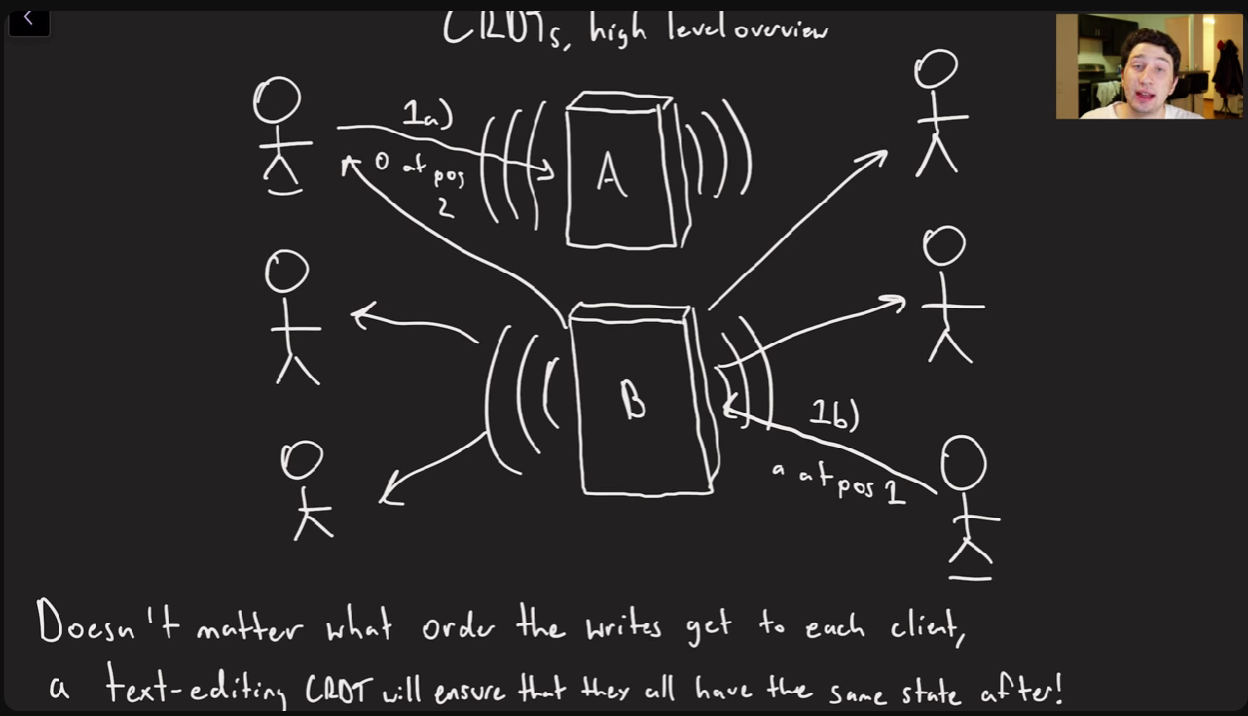 CRDTs, high level overview
1a)
0 at pos
2
A
B
1b)
a at pos 1
Doesn't matter what order the writes get to each client,
a text-editing CRDT will ensure that they all have the same state after!